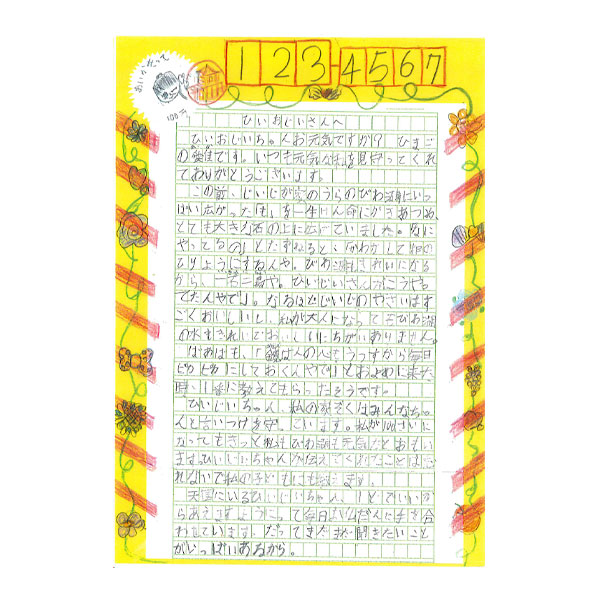 1 2 3 - 4 5 6 7
あいにこだって
100円
ひいおじいさんへ
ひいおじいちゃんお元気ですか?ひまご
の です。いつも元気な私を見守ってくれ
てありがとうございます。
この前、じいじが家のうらのびわ湖にいっ
ぱい広がった「も」を一生けん命にかきあつめ、
とても大きな石の上に広げていました。「なに
やってるの」とたずねると、「かわかして畑の
ひりょうにするんや。びわ湖もきれいになる
から、一石二鳥や。ひいじいさんがこうやっ
てたんやで」。なるほどじいじのやさいはす
ごくおいしいし、私が大人になってもびわ湖
の水もきれいでおいしいにちがいありません。
ばあばも、「 は人の心をうつすから毎日
ピカピカにしておくんやで」とおよめに来た
時、一番に教えてもらったそうです。
ひいじいちゃん、私の家ぞくはみんなちゃ
んと言いつけを守っています。私が さいに
なってもきっと私もびわ湖も元気だとおもい
ます。ひいじいちゃんが伝えてくれたことはわす
れないで私の子どもにも話します。
天国にいるひいじいちゃん、 とでいいか
らあえますようにって毎日ぶつだんに手を合
わせています。だってまだまだ聞きたいこと
がいっぱいあるから。